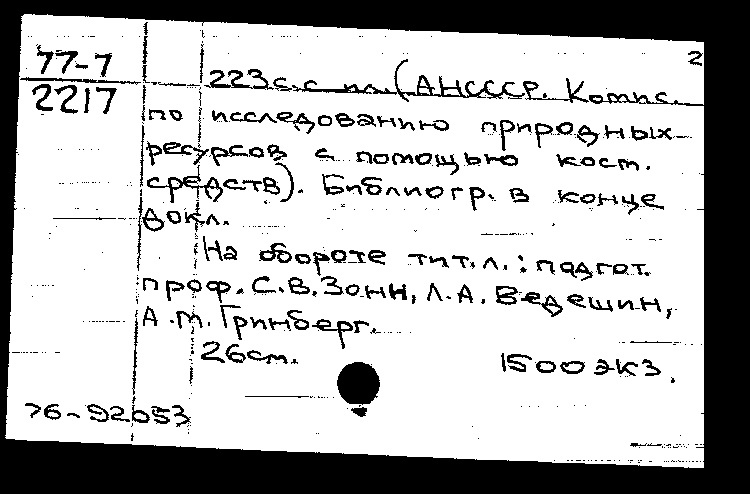 2
77-7
2217
223 с. с ил. (АН СССР. Комис.
по исследованию природных
ресурсов с помощью косм.
средств). Библиогр. в конце
докл.
На обороте тит. л.: подгот.
проф. С. В. Зонн, Л. А. Ведешин,
А. М. Гринберг.
26 см. 1500 экз.
76-92053